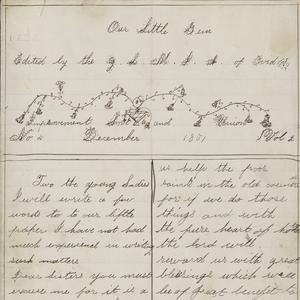 Our Little Gem
Edited by the Y. L. M. I. A. of Ford
Improvement and Union
No 4 December 1881 Vol 2
To the young Ladies
I will write a few
words to to our little
paper I have not had
much experience in writing
such matters
Dear sisters you must
excuse me for it is a
us help the poor
in the old
for if we do those
things and with
the pure heart
the lord will
reward us with great
blessings which will
be of great benefit to